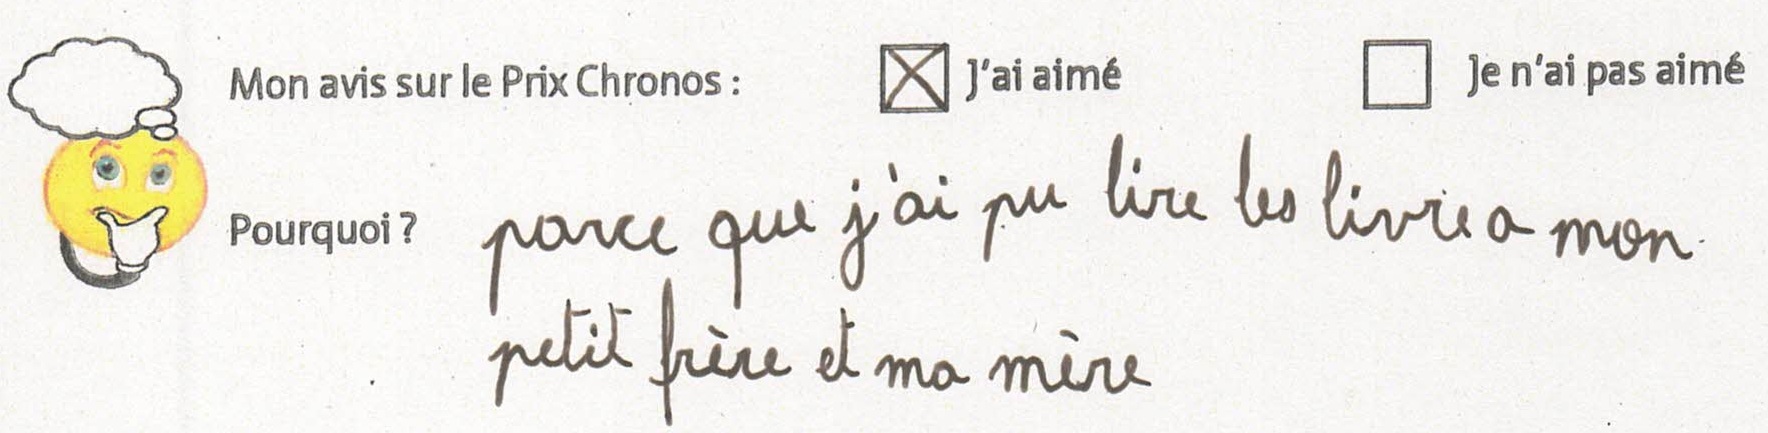 Mon avis sur le Prix Chronos : J'ai aimé Je n'ai pas aimé
Pourquoi ? parce que j'ai pu lire les livre a mon
petit frère et ma mère